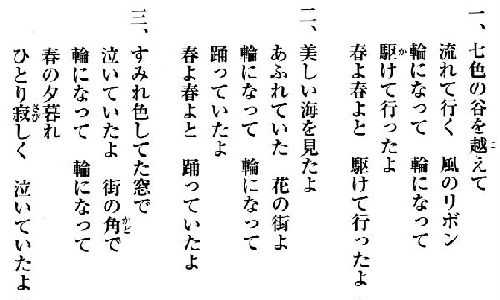 一、七色の谷を越えて
流れて行く 風のリボン
輪になって 輪になって
駆けて行ったよ
春よ春よと 駆けて行ったよ
二、美しい海を見たよ
あふれていた 花の街よ
輪になって 輪になって
踊っていたよ
春よ春よと 踊っていたよ
三、すみれ色してた窓で
泣いていたよ 街の角で
輪になって 輪になって
春の夕暮れ
ひとり寂しく 泣いていたよ